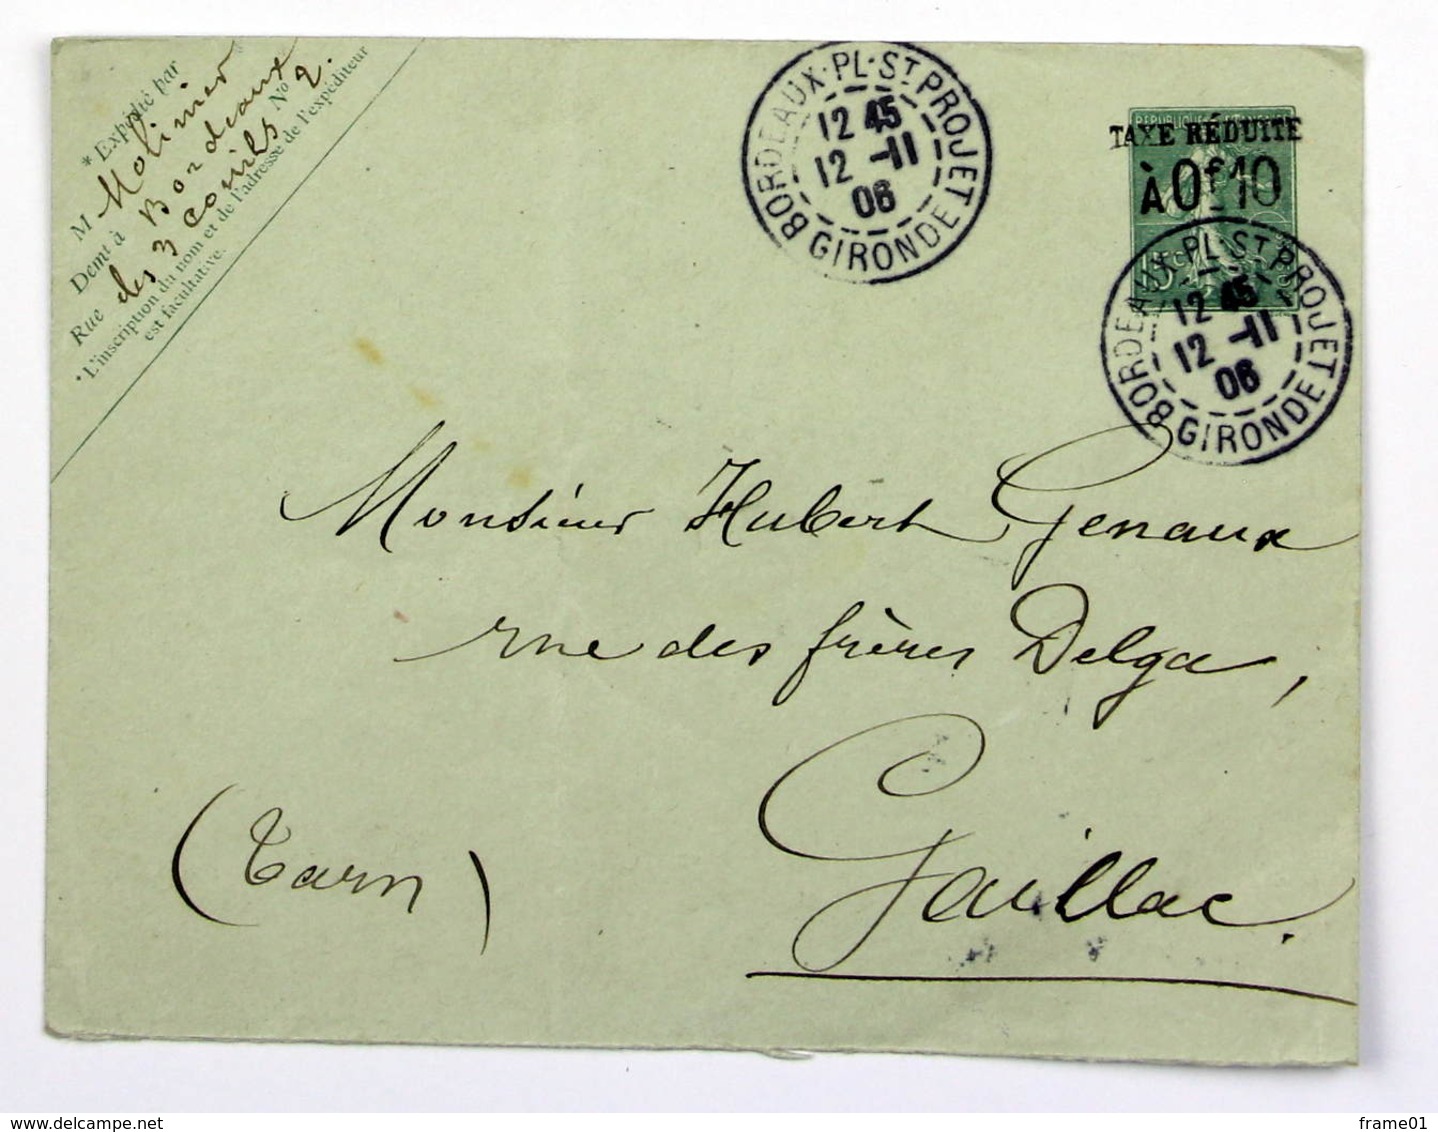 * Expédié par
M Molinier
Demt à Bordeaux
Rue des 3 conils No 2.
*L'inscription du nom et de l'adresse de l'expéditeur
est facultative.
BORDEAUX·PL·ST PROJET
12 45
12 -11
06
GIRONDE
REPUBLIQUE FRANÇAISE
TAXE RÉDUITE
À 0f10
15c
BORDEAUX·PL·ST PROJET
12 45
12 -11
06
GIRONDE
Monsieur Hubert Genaux
rue des frères Delga,
Gaillac.
(Tarn)
delcampe.net
frame01